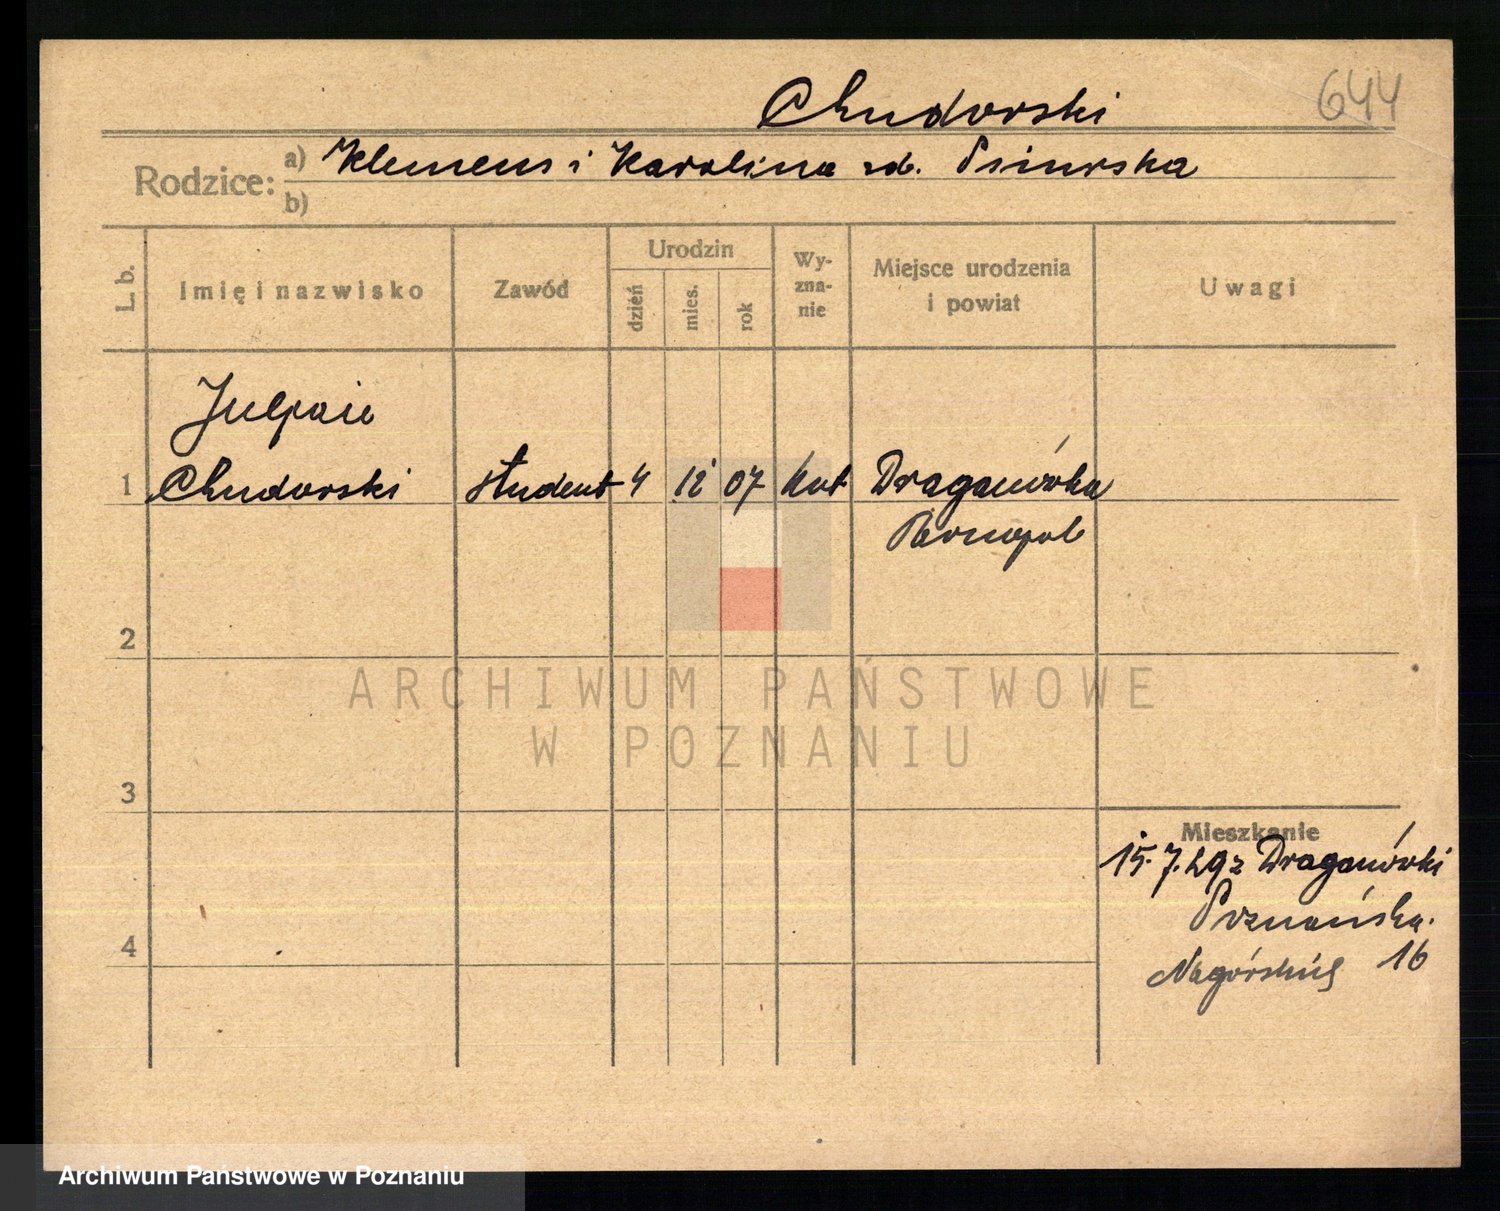 Chudorski 644
Rodzice: a) Klemens i Karolina zd.
b)
L. b. Imię i nazwisko Zawód Urodzin dzień mies. rok Wy-zna-nie Miejsce urodzenia i powiat Uwagi
1 Chudorski student 4 12 07 kat Draganówka
2
3
Mieszkanie
15.7.29 z Draganówki
Poznańska.
4
16
ARCHIWUM PAŃSTWOWE
W POZNANIU
Archiwum Państwowe w Poznaniu